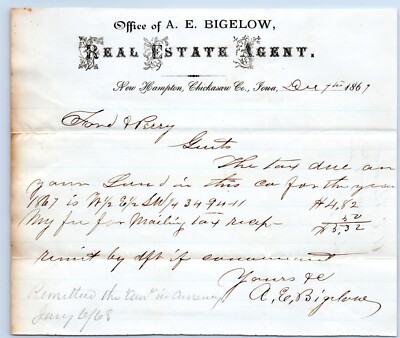 Office of A. E. BIGELOW,
REAL ESTATE AGENT.
New Hampton, Chickasaw Co., Iowa, Dec 7th 1867
Ford & Pery
Gents
The tax due on
your Land in this co for the year
1867 is W/2 E/2 SW/4 34-94-11 $4,82
My fee for Mailing tax recpt 50
$5,32
remit by dft if convenient
Yours &c
A. E. Bigelow
Remitted the in Currency
Jany 6/68